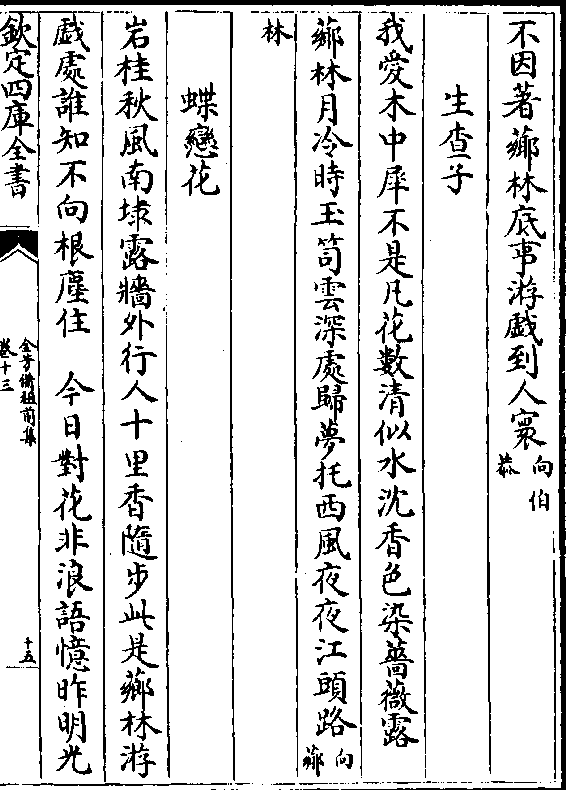 不因著薌林底事游戲到人寰向伯
恭
生查子
我愛木中犀不是凡花數清似水沈香色染薔薇露
薌林月冷時玉筍雲深處歸夢托西風夜夜江頭路向薌
林
蝶戀花
岩桂秋風南埭露牆外行人十里香隨步此是薌林游
戲處誰知不向根塵住　今日對花非浪語憶昨明光
欽定四庫全書
全芳備祖前集
卷十三
十五